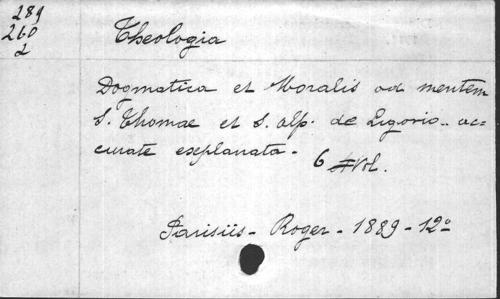 289
260
2
Theologia
Dogmatica et Moralis ad mentem
S. Thomae et S. Alp. de Ligorio - ac-
curate explanata - 6 Vol.
Parisiis - Roger - 1889 - 12º